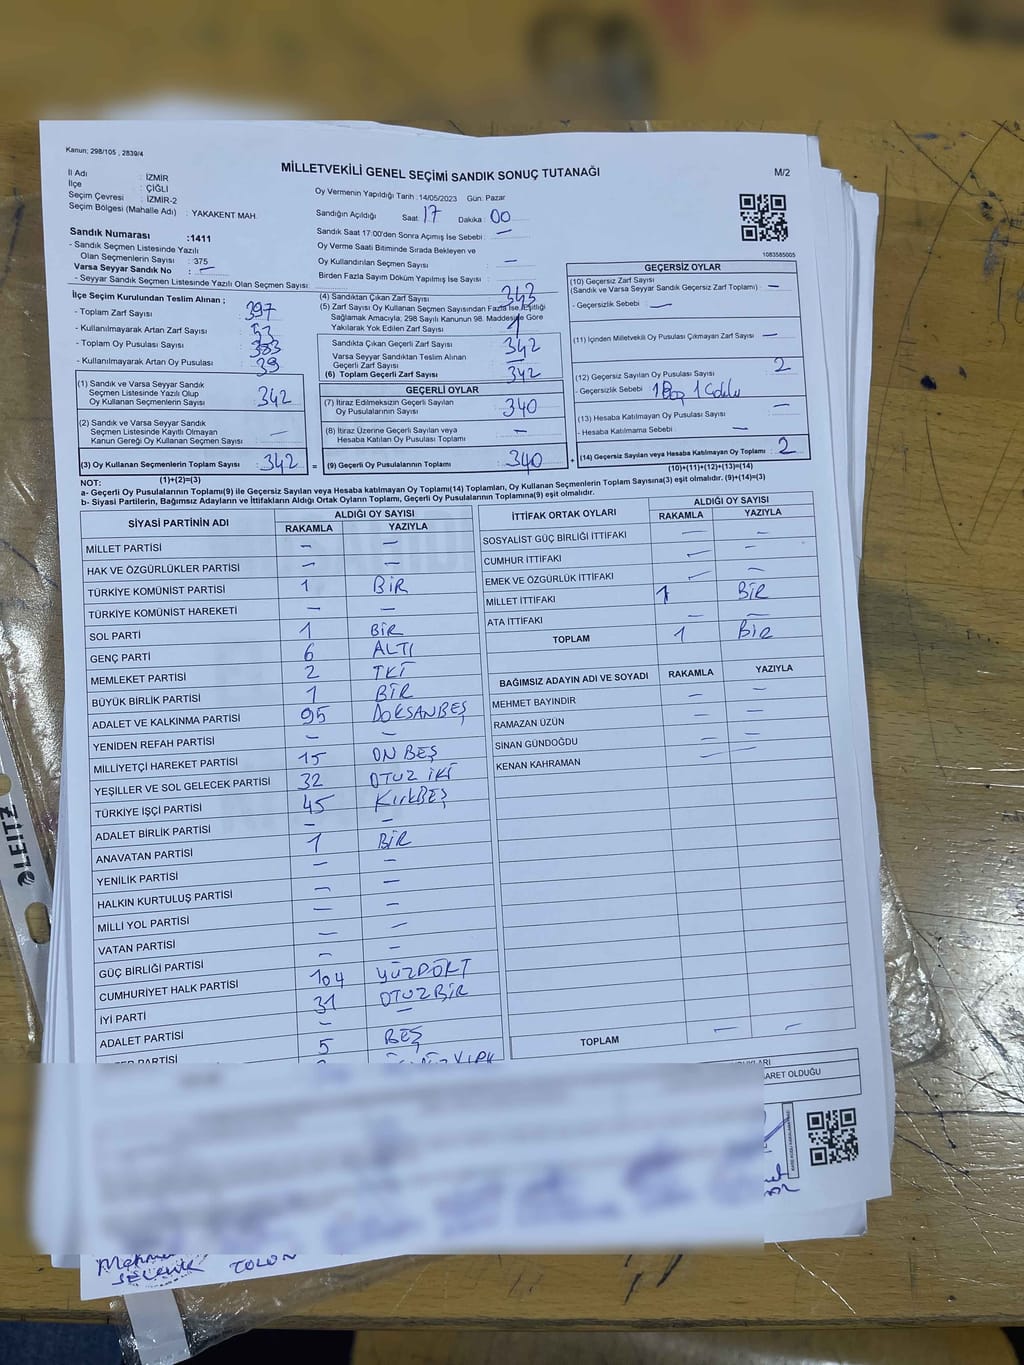 Kanun; 298/105 , 2839/4
MİLLETVEKİLİ GENEL SEÇİMİ SANDIK SONUÇ TUTANAĞI
M/2
İl Adı : İZMİR
İlçe : ÇİĞLİ
Seçim Çevresi : İZMİR-2
Seçim Bölgesi (Mahalle Adı) : YAKAKENT MAH.
Sandık Numarası :1411
- Sandık Seçmen Listesinde Yazılı
Olan Seçmenlerin Sayısı : 375
Varsa Seyyar Sandık No : —
- Seyyar Sandık Seçmen Listesinde Yazılı Olan Seçmen Sayısı :
Oy Vermenin Yapıldığı Tarih :14/05/2023 Gün: Pazar
Sandığın Açıldığı Saat: 17 Dakika : 00
Sandık Saat 17:00'den Sonra Açımış İse Sebebi : —
Oy Verme Saati Bitiminde Sırada Bekleyen ve
Oy Kullandırılan Seçmen Sayısı —
Birden Fazla Sayım Döküm Yapılmış İse Sayısı :
1083585005
İlçe Seçim Kurulundan Teslim Alınan ;
- Toplam Zarf Sayısı 397
- Kullanılmayarak Artan Zarf Sayısı : 53
- Toplam Oy Pusulası Sayısı : 383
- Kullanılmayarak Artan Oy Pusulası : 39
(1) Sandık ve Varsa Seyyar Sandık
Seçmen Listesinde Yazılı Olup
Oy Kullanan Seçmenlerin Sayısı : 342
(2) Sandık ve Varsa Seyyar Sandık
Seçmen Listesinde Kayıtlı Olmayan
Kanun Gereği Oy Kullanan Seçmen Sayısı : —
(3) Oy Kullanan Seçmenlerin Toplam Sayısı : 342 =
(1)+(2)=(3)
(4) Sandıktan Çıkan Zarf Sayısı 343
(5) Zarf Sayısı Oy Kullanan Seçmen Sayısından Fazla İse, Eşitliği
Sağlamak Amacıyla; 298 Sayılı Kanunun 98. Maddesine Göre
Yakılarak Yok Edilen Zarf Sayısı : 1
Sandıkta Çıkan Geçerli Zarf Sayısı : 342
Varsa Seyyar Sandıktan Teslim Alınan
Geçerli Zarf Sayısı : —
(6) Toplam Geçerli Zarf Sayısı : 342
GEÇERLİ OYLAR
(7) İtiraz Edilmeksizin Geçerli Sayılan
Oy Pusulalarının Sayısı : 340
(8) İtiraz Üzerine Geçerli Sayılan veya
Hesaba Katılan Oy Pusulası Toplamı : —
(9) Geçerli Oy Pusulalarının Toplamı 340 +
GEÇERSİZ OYLAR
(10) Geçersiz Zarf Sayısı
(Sandık ve Varsa Seyyar Sandık Geçersiz Zarf Toplamı) : —
- Geçersizlik Sebebi : —
(11) İçinden Milletvekili Oy Pusulası Çıkmayan Zarf Sayısı : —
(12) Geçersiz Sayılan Oy Pusulası Sayısı : 2
- Geçersizlik Sebebi : 1 Boş 1 Çoklu
(13) Hesaba Katılmayan Oy Pusulası Sayısı : —
- Hesaba Katılmama Sebebi : —
(14) Geçersiz Sayılan veya Hesaba Katılmayan Oy Toplamı : 2
(10)+(11)+(12)+(13)=(14)
NOT:
a- Geçerli Oy Pusulalarının Toplamı(9) ile Geçersiz Sayılan veya Hesaba katılmayan Oy Toplamı(14) Toplamları, Oy Kullanan Seçmenlerin Toplam Sayısına(3) eşit olmalıdır. (9)+(14)=(3)
b- Siyasi Partilerin, Bağımsız Adayların ve İttifakların Aldığı Ortak Oyların Toplamı, Geçerli Oy Pusulalarının Toplamına(9) eşit olmalıdır.
SİYASİ PARTİNİN ADI ALDIĞI OY SAYISI
RAKAMLA YAZIYLA
MİLLET PARTİSİ — —
HAK VE ÖZGÜRLÜKLER PARTİSİ — —
TÜRKİYE KOMÜNİST PARTİSİ 1 BİR
TÜRKİYE KOMÜNİST HAREKETİ — —
SOL PARTİ 1 BİR
GENÇ PARTİ 6 ALTI
MEMLEKET PARTİSİ 2 İKİ
BÜYÜK BİRLİK PARTİSİ 1 BİR
ADALET VE KALKINMA PARTİSİ 95 DOKSANBEŞ
YENİDEN REFAH PARTİSİ — —
MİLLİYETÇİ HAREKET PARTİSİ 15 ON BEŞ
YEŞİLLER VE SOL GELECEK PARTİSİ 32 OTUZ İKİ
TÜRKİYE İŞÇİ PARTİSİ 45 KırkBEŞ
ADALET BİRLİK PARTİSİ — —
ANAVATAN PARTİSİ 1 BİR
YENİLİK PARTİSİ — —
HALKIN KURTULUŞ PARTİSİ — —
MİLLİ YOL PARTİSİ — —
VATAN PARTİSİ — —
GÜÇ BİRLİĞİ PARTİSİ — —
CUMHURİYET HALK PARTİSİ 104 YÜZDÖRT
İYİ PARTİ 31 OTUZBİR
ADALET PARTİSİ — —
PARTİSİ 5 BEŞ
İTTİFAK ORTAK OYLARI ALDIĞI OY SAYISI
RAKAMLA YAZIYLA
SOSYALİST GÜÇ BİRLİĞİ İTTİFAKI — —
CUMHUR İTTİFAKI — —
EMEK VE ÖZGÜRLÜK İTTİFAKI — —
MİLLET İTTİFAKI 1 BİR
ATA İTTİFAKI — —
TOPLAM 1 BİR
BAĞIMSIZ ADAYIN ADI VE SOYADI RAKAMLA YAZIYLA
MEHMET BAYINDIR — —
RAMAZAN ÜZÜN — —
SİNAN GÜNDOĞDU — —
KENAN KAHRAMAN — —
TOPLAM — —
OLDUĞU
SELÇUK TOLON
LEITZ